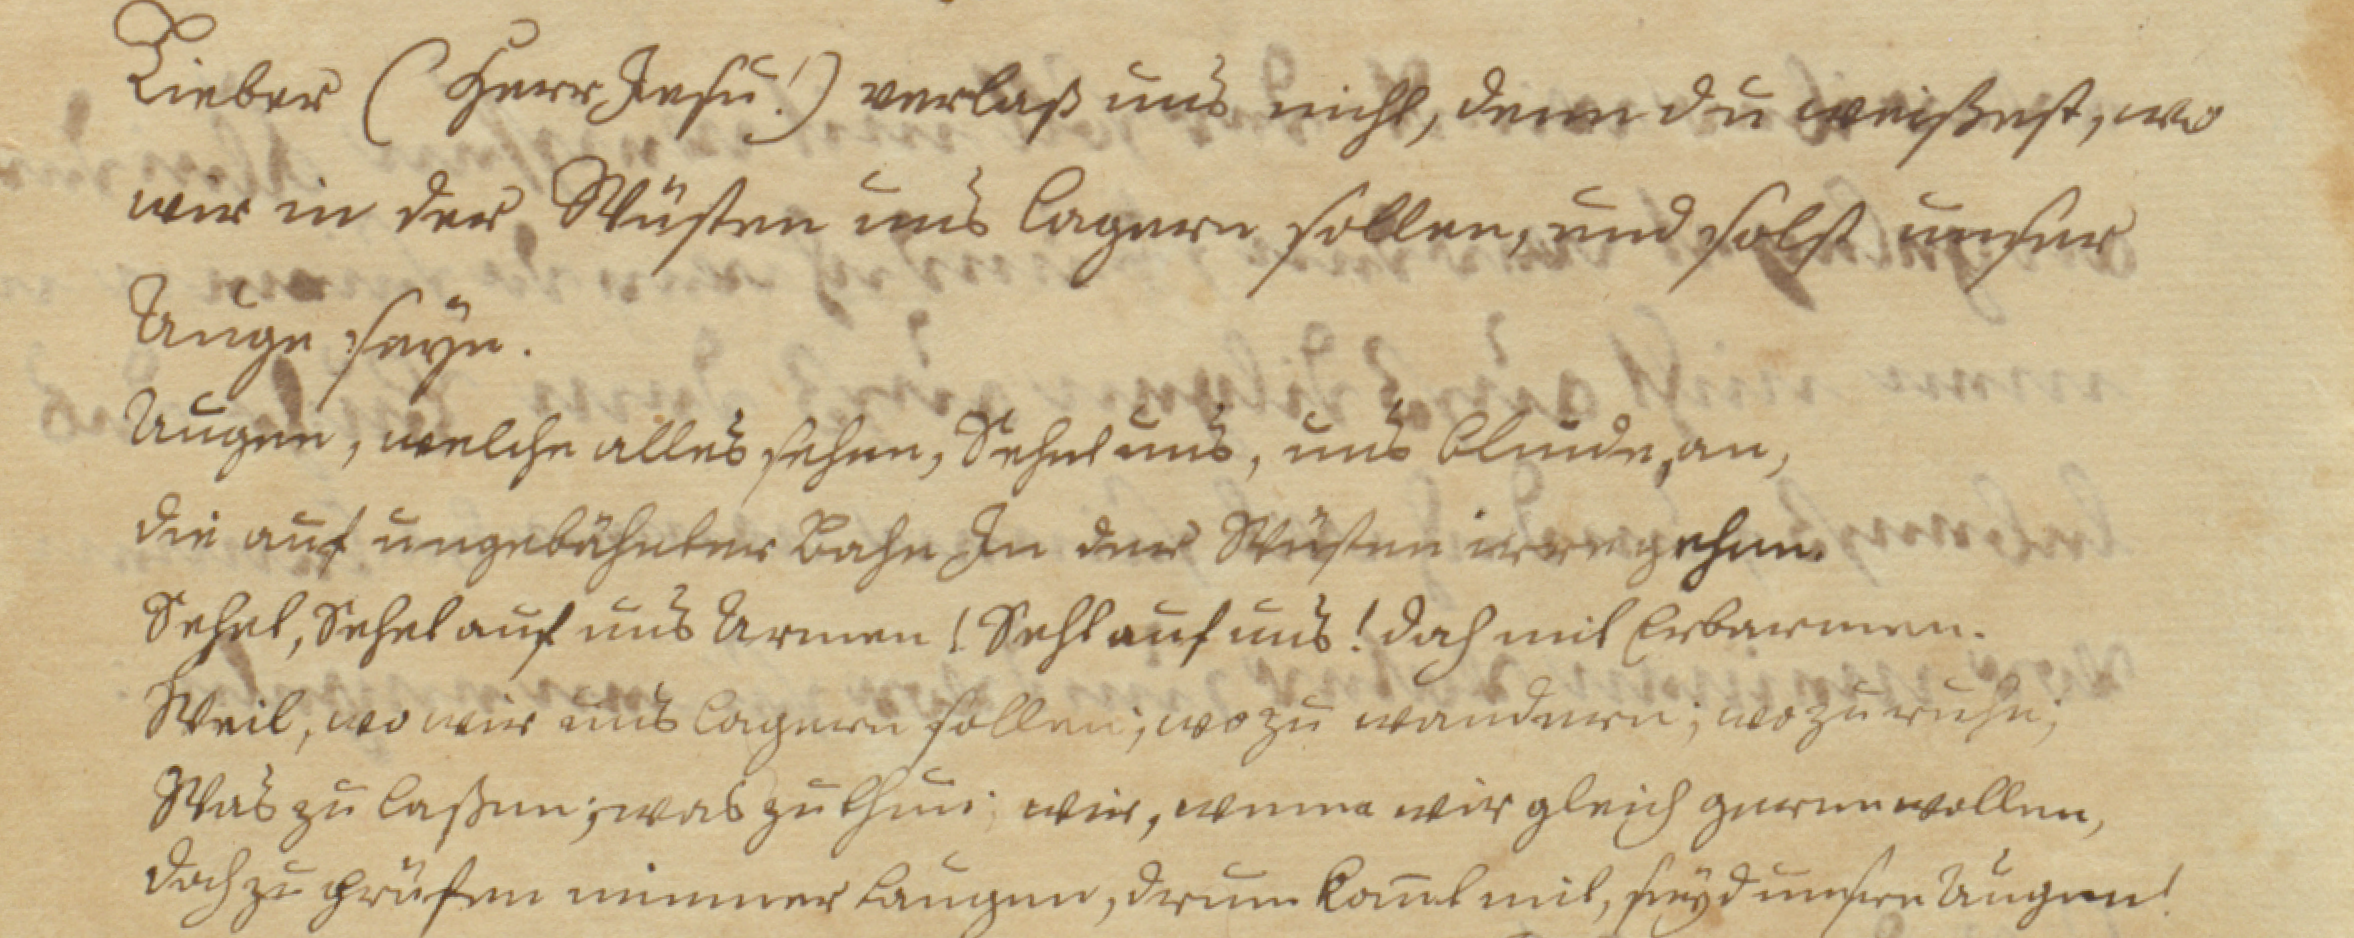 Lieber (Herr Jesu!) verlaß uns nicht, denn du weißest, wo
wir in der Wüsten uns lagern sollen, und solst unser
Auge seyn.
Augen, welche alles sehen, Sehet uns, uns blinde, an,
die auf ungebähnter Bahn In der Wüsten irregehen.
Sehet, Sehet auf uns Armen! Seht auf uns! doch mit Erbarmen.
Weil, wo wir uns lagern sollen; wo zu wandern; wo zu ruhn;
Was zu laßen; was zu thun; wir, wenn wir gleich gerne wollen,
doch zu prüfen nimmer taugen, drum kom̄t mit, seyd unsre Augen!